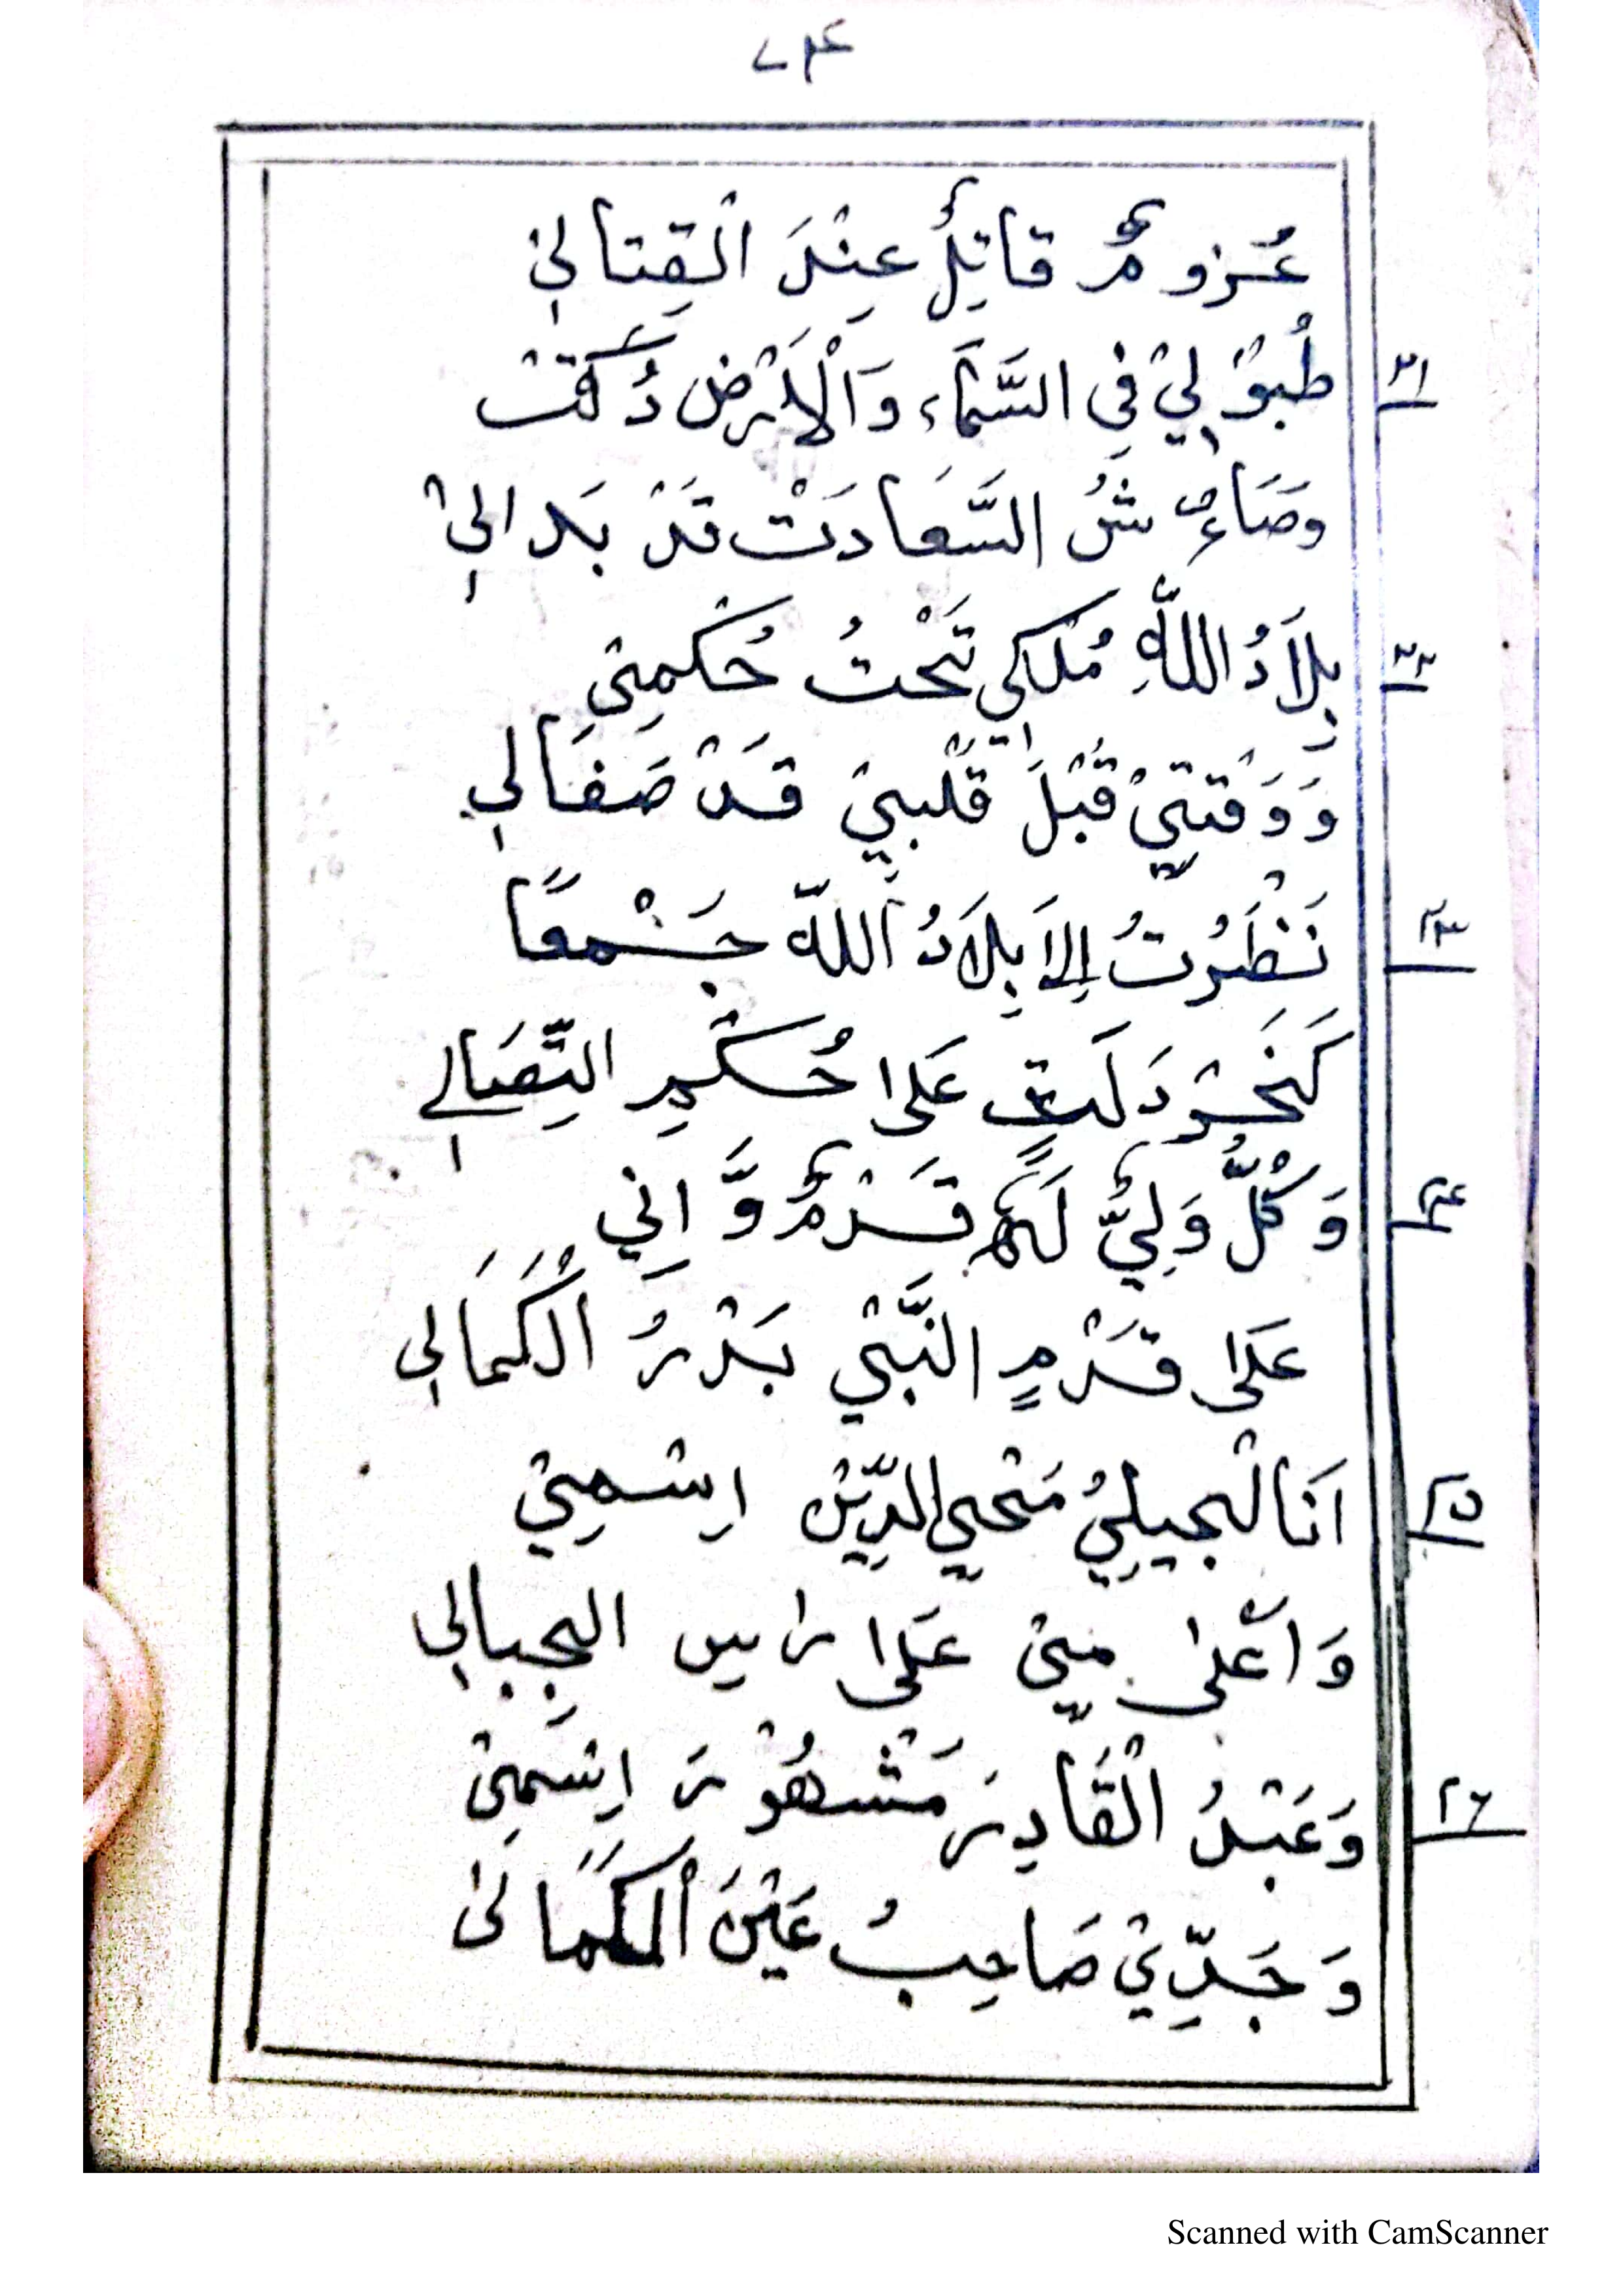 ٧٤
عُزومٌ قاتِلٌ عِنْدَ الْقِتالِيْ
٢١ طُبوْلِيْ فِي السَّمَاء وَالْاَرْضِ دُكَّتْ
وَصَاءُ شُ السَّعَادَتْ قَدْ بَدالِيْ
٢٢ بِلَادُ اللّٰهِ مُلكِي تَحْتُ حُكمِتِيْ
وَوَقتِيْ قَبْلَ قَلْبِيْ قَدْ صَفَالِي
٢٣ نَظَرْتُ اِلَا بِلَادُ اللّٰه جَمْعًا
كَخَرْدَلَةٍ عَلٰى حُكْمِ التِّصَالِي
٢٤ وَكُلُّ وَلِيٌّ لَهٗ قَدْمٌ وَّ اِنِي
عَلٰى قَدْمٍ النَّبِيْ بَدْرُ الْكَمَالِي
٢٥ اَنَالْجِيلِيُ مَحْيِ الدِّيْن اِسْمِيْ
وَاَعْلٰى مِيْ عَلٰى رَاسِ الْجِبالِي
٢٦ وَعَبْدُ الْقَادِرَ مَشْهُوْرَ اِسْمِيْ
وَجَدِّيْ صَاحِبُ عَيْنَ الْكَمَالِيْ
Scanned with CamScanner